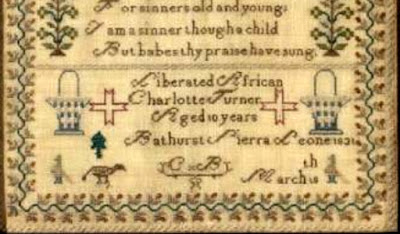 For sinners old and young;
I am a sinner though a child
But babes thy praise have sung.
Liberated African
Charlotte Turner
Aged 10 years
Bathurst Sierra Leone 1831
March
th